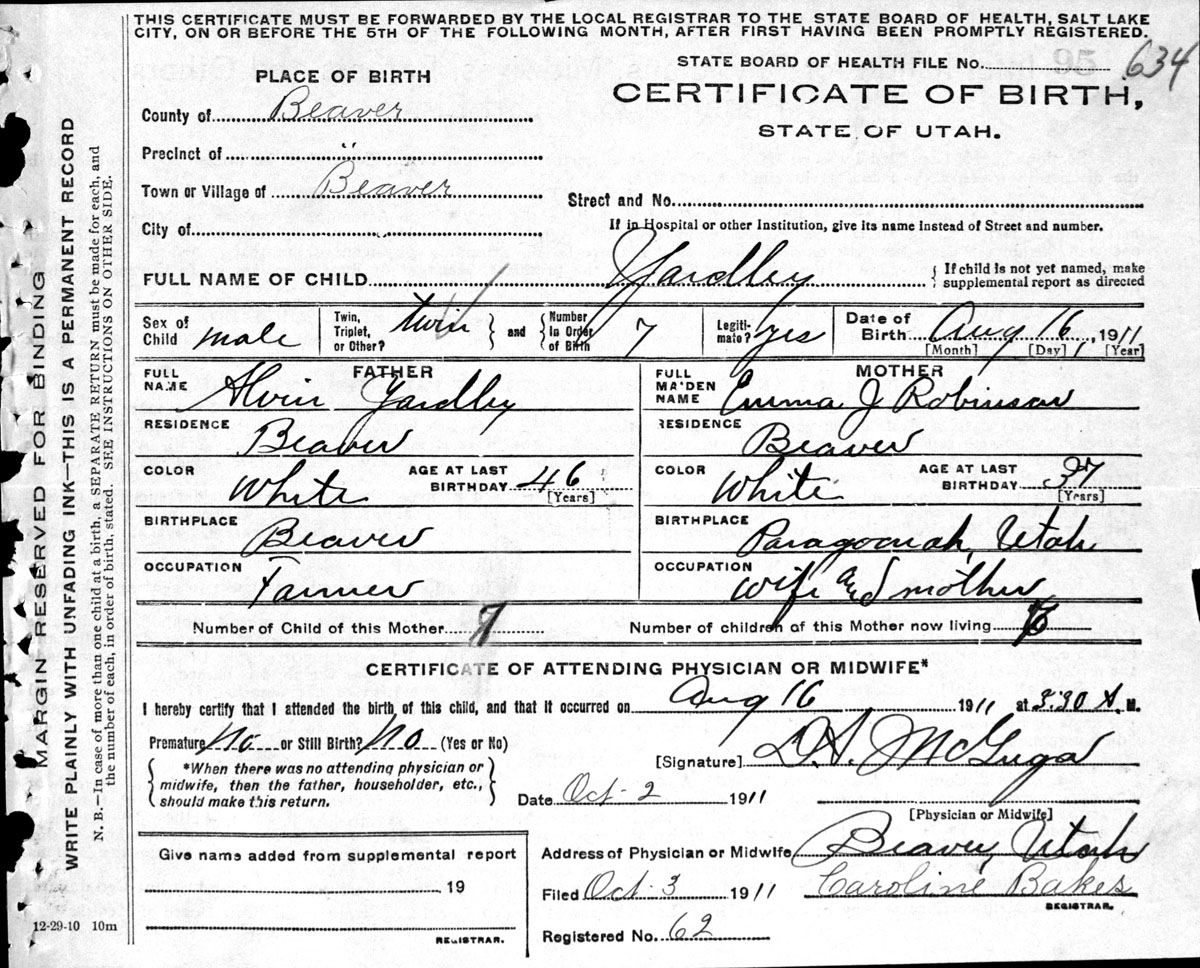 THIS CERTIFICATE MUST BE FORWARDED BY THE LOCAL REGISTRAR TO THE STATE BOARD OF HEALTH, SALT LAKE
CITY, ON OR BEFORE THE 5TH OF THE FOLLOWING MONTH, AFTER FIRST HAVING BEEN PROMPTLY REGISTERED.
STATE BOARD OF HEALTH FILE No. 634
PLACE OF BIRTH
CERTIFICATE OF BIRTH,
STATE OF UTAH.
County of Beaver
Precinct of "
Town or Village of Beaver
Street and No.
City of
If in Hospital or other Institution, give its name Instead of Street and number.
FULL NAME OF CHILD Yardley { If child is not yet named, make
supplemental report as directed
Sex of Child male Twin, Triplet, or Other? twin } and { Number In Order of Birth 7 Legitimate? yes Date of Birth Aug 16, 1911
[Month] [Day] [Year]
FATHER
FULL NAME Alvin Yardley
RESIDENCE Beaver
COLOR White AGE AT LAST BIRTHDAY 46 [Years]
BIRTHPLACE Beaver
OCCUPATION Farmer
MOTHER
FULL MAIDEN NAME Emma J Robinson
RESIDENCE Beaver
COLOR White AGE AT LAST BIRTHDAY 37 [Years]
BIRTHPLACE Paragoonah, Utah
OCCUPATION wife and mother
Number of Child of this Mother 7 Number of children of this Mother now living
CERTIFICATE OF ATTENDING PHYSICIAN OR MIDWIFE*
I hereby certify that I attended the birth of this child, and that it occurred on Aug 16 1911 at 3:30 A. M.
Premature No or Still Birth? No (Yes or No)
*When there was no attending physician or
midwife, then the father, householder, etc.,
should make this return.
[Signature] D.A. McGrega
Date Oct-2 1911
[Physician or Midwife]
Address of Physician or Midwife Beaver, Utah
Filed Oct-3 1911 Caroline Bakes
REGISTRAR.
Registered No. 62
Give name added from supplemental report
19
REGISTRAR.
12-29-10 10m
MARGIN RESERVED FOR BINDING
WRITE PLAINLY WITH UNFADING INK—THIS IS A PERMANENT RECORD
N. B.—In case of more than one child at a birth, a SEPARATE RETURN must be made for each, and
the number of each, in order of birth, stated. SEE INSTRUCTIONS ON OTHER SIDE.